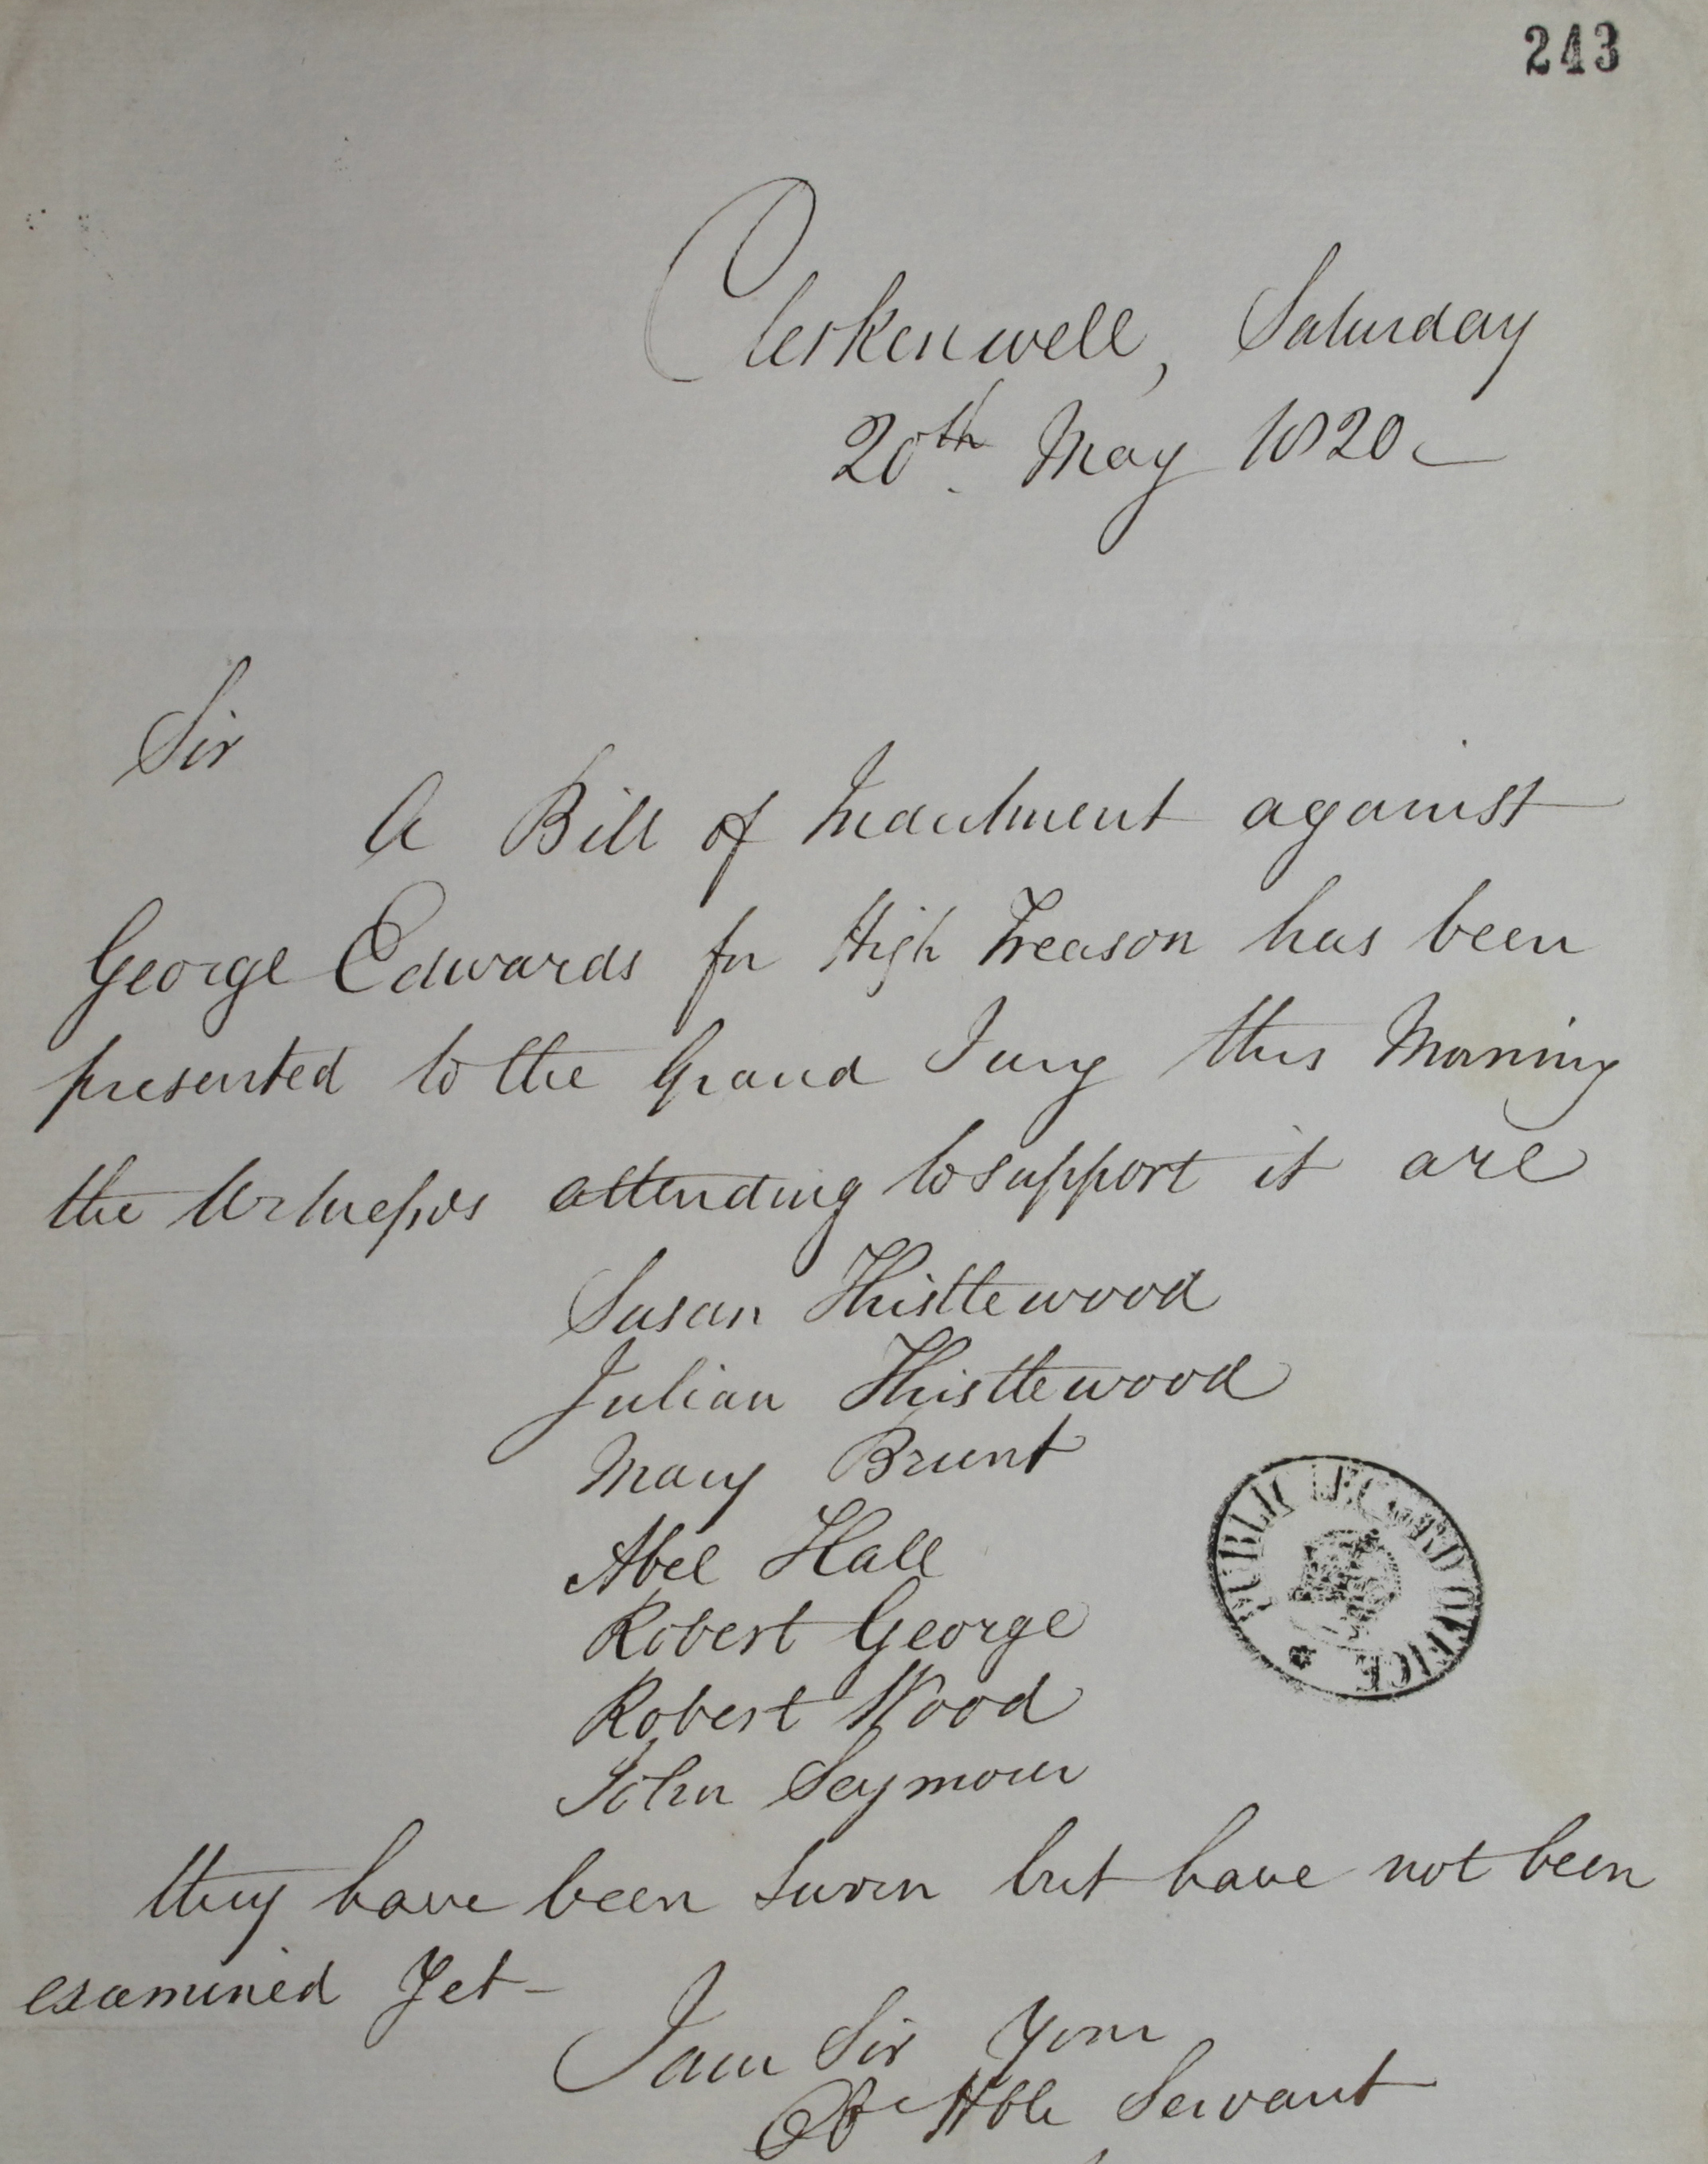 243
Clerkenwell, Saturday
20th May 1820
Sir
A Bill of Indictment against
George Edwards for High Treason has been
presented to the Grand Jury this Morning
the Witnesses attending to support it are
Susan Thistlewood
Julian Thistlewood
Mary Brunt
Abel Hall
Robert George
Robert Wood
John Seymour
PUBLIC RECORD OFFICE
they have been sworn but have not been
examined Yet-
I am Sir Your
Ob Hble Servant